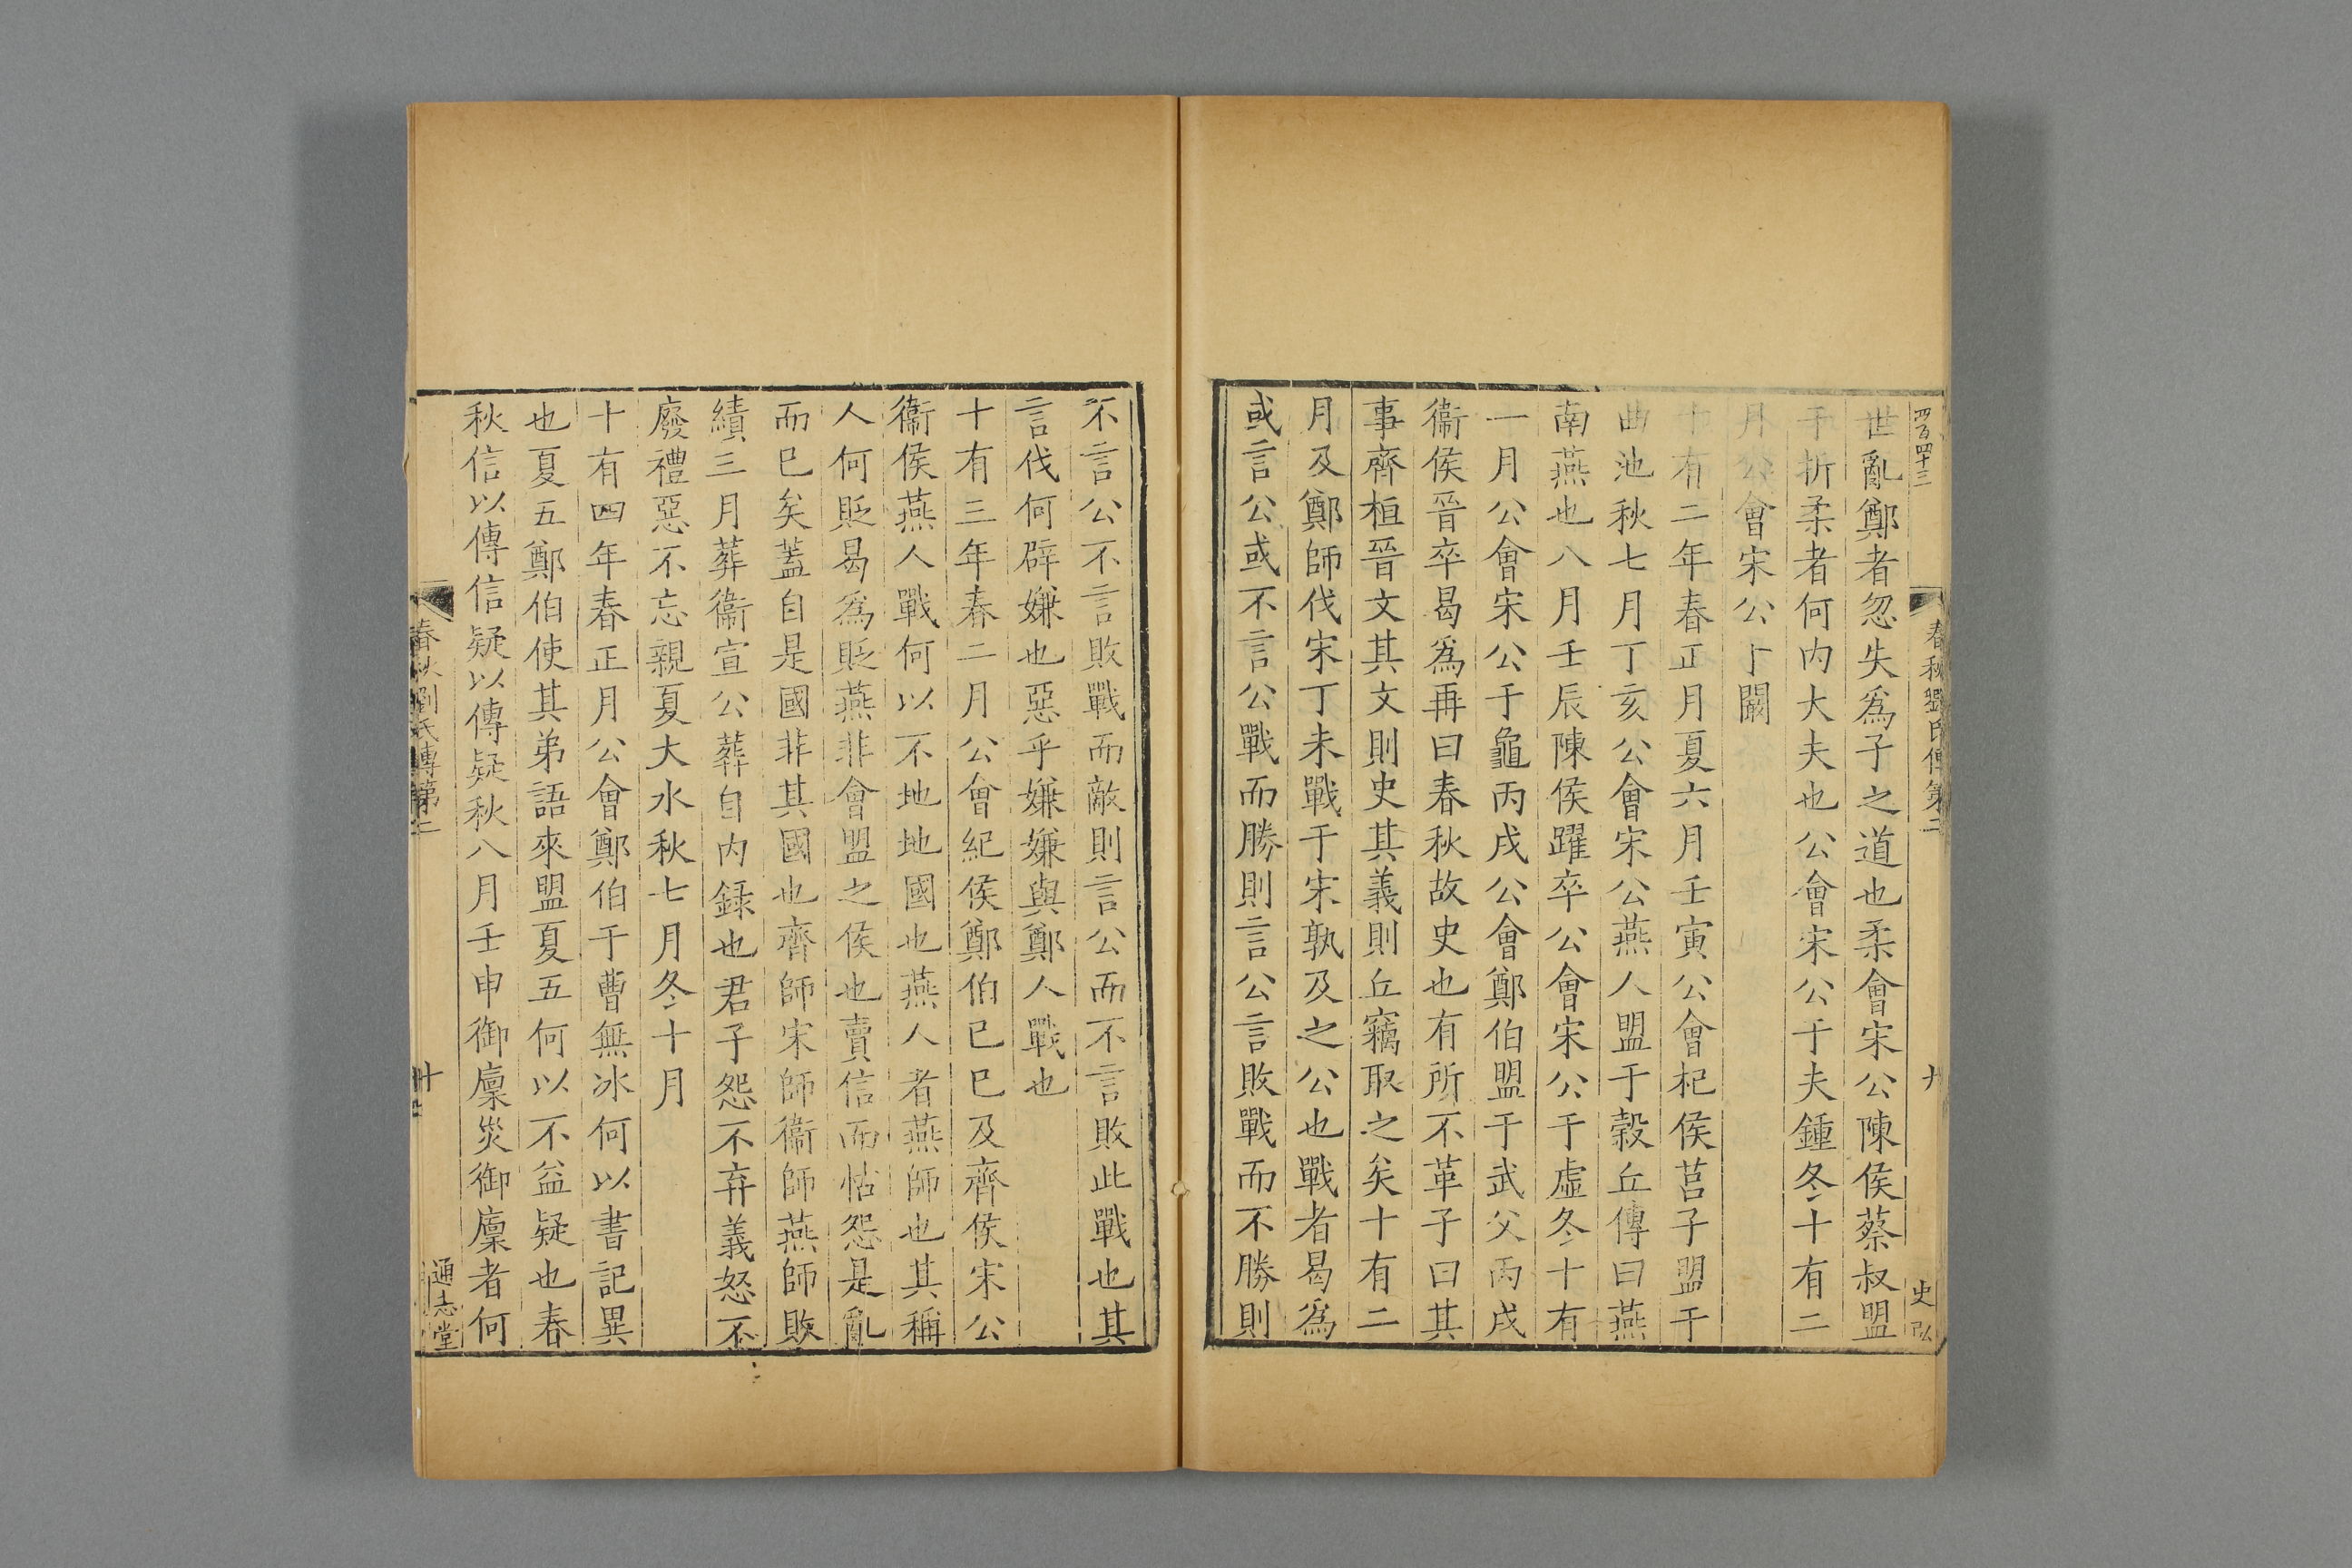 四百四十三
春秋劉氏傳第二
九
史
世亂鄭者忽失爲子之道也柔會宋公陳侯蔡叔盟
于折柔者何内大夫也公會宋公于夫鍾冬十有二
月公會宋公于闞
十有二年春正月夏六月壬寅公會杞侯莒子盟于
曲池秋七月丁亥公會宋公燕人盟于穀丘傳曰燕
南燕也八月壬辰陳侯躍卒公會宋公于虛冬十有
一月公會宋公于龜丙戌公會鄭伯盟于武父丙戌
衞侯晉卒曷爲再曰春秋故史也有所不革子曰其
事齊桓晉文其文則史其義則丘竊取之矣十有二
月及鄭師伐宋丁未戰于宋孰及之公也戰者曷爲
或言公或不言公戰而勝則言公言敗戰而不勝則
不言公不言敗戰而敵則言公而不言敗此戰也其
言伐何辟嫌也惡乎嫌嫌與鄭人戰也
十有三年春二月公會紀侯鄭伯已巳及齊侯宋公
衞侯燕人戰何以不地地國也燕人者燕師也其稱
人何貶曷爲貶燕非會盟之侯也賣信而怙怨是亂
而已矣蓋自是國非其國也齊師宋師衞師燕師敗
績三月葬衞宣公葬自内録也君子怨不弃義怒不
廢禮惡不忘親夏大水秋七月冬十月
十有四年春正月公會鄭伯于曹無冰何以書記異
也夏五鄭伯使其弟語來盟夏五何以不益疑也春
秋信以傳信疑以傳疑秋八月壬申御廩災御廩者何
春秋劉氏傳第二
十
通志堂